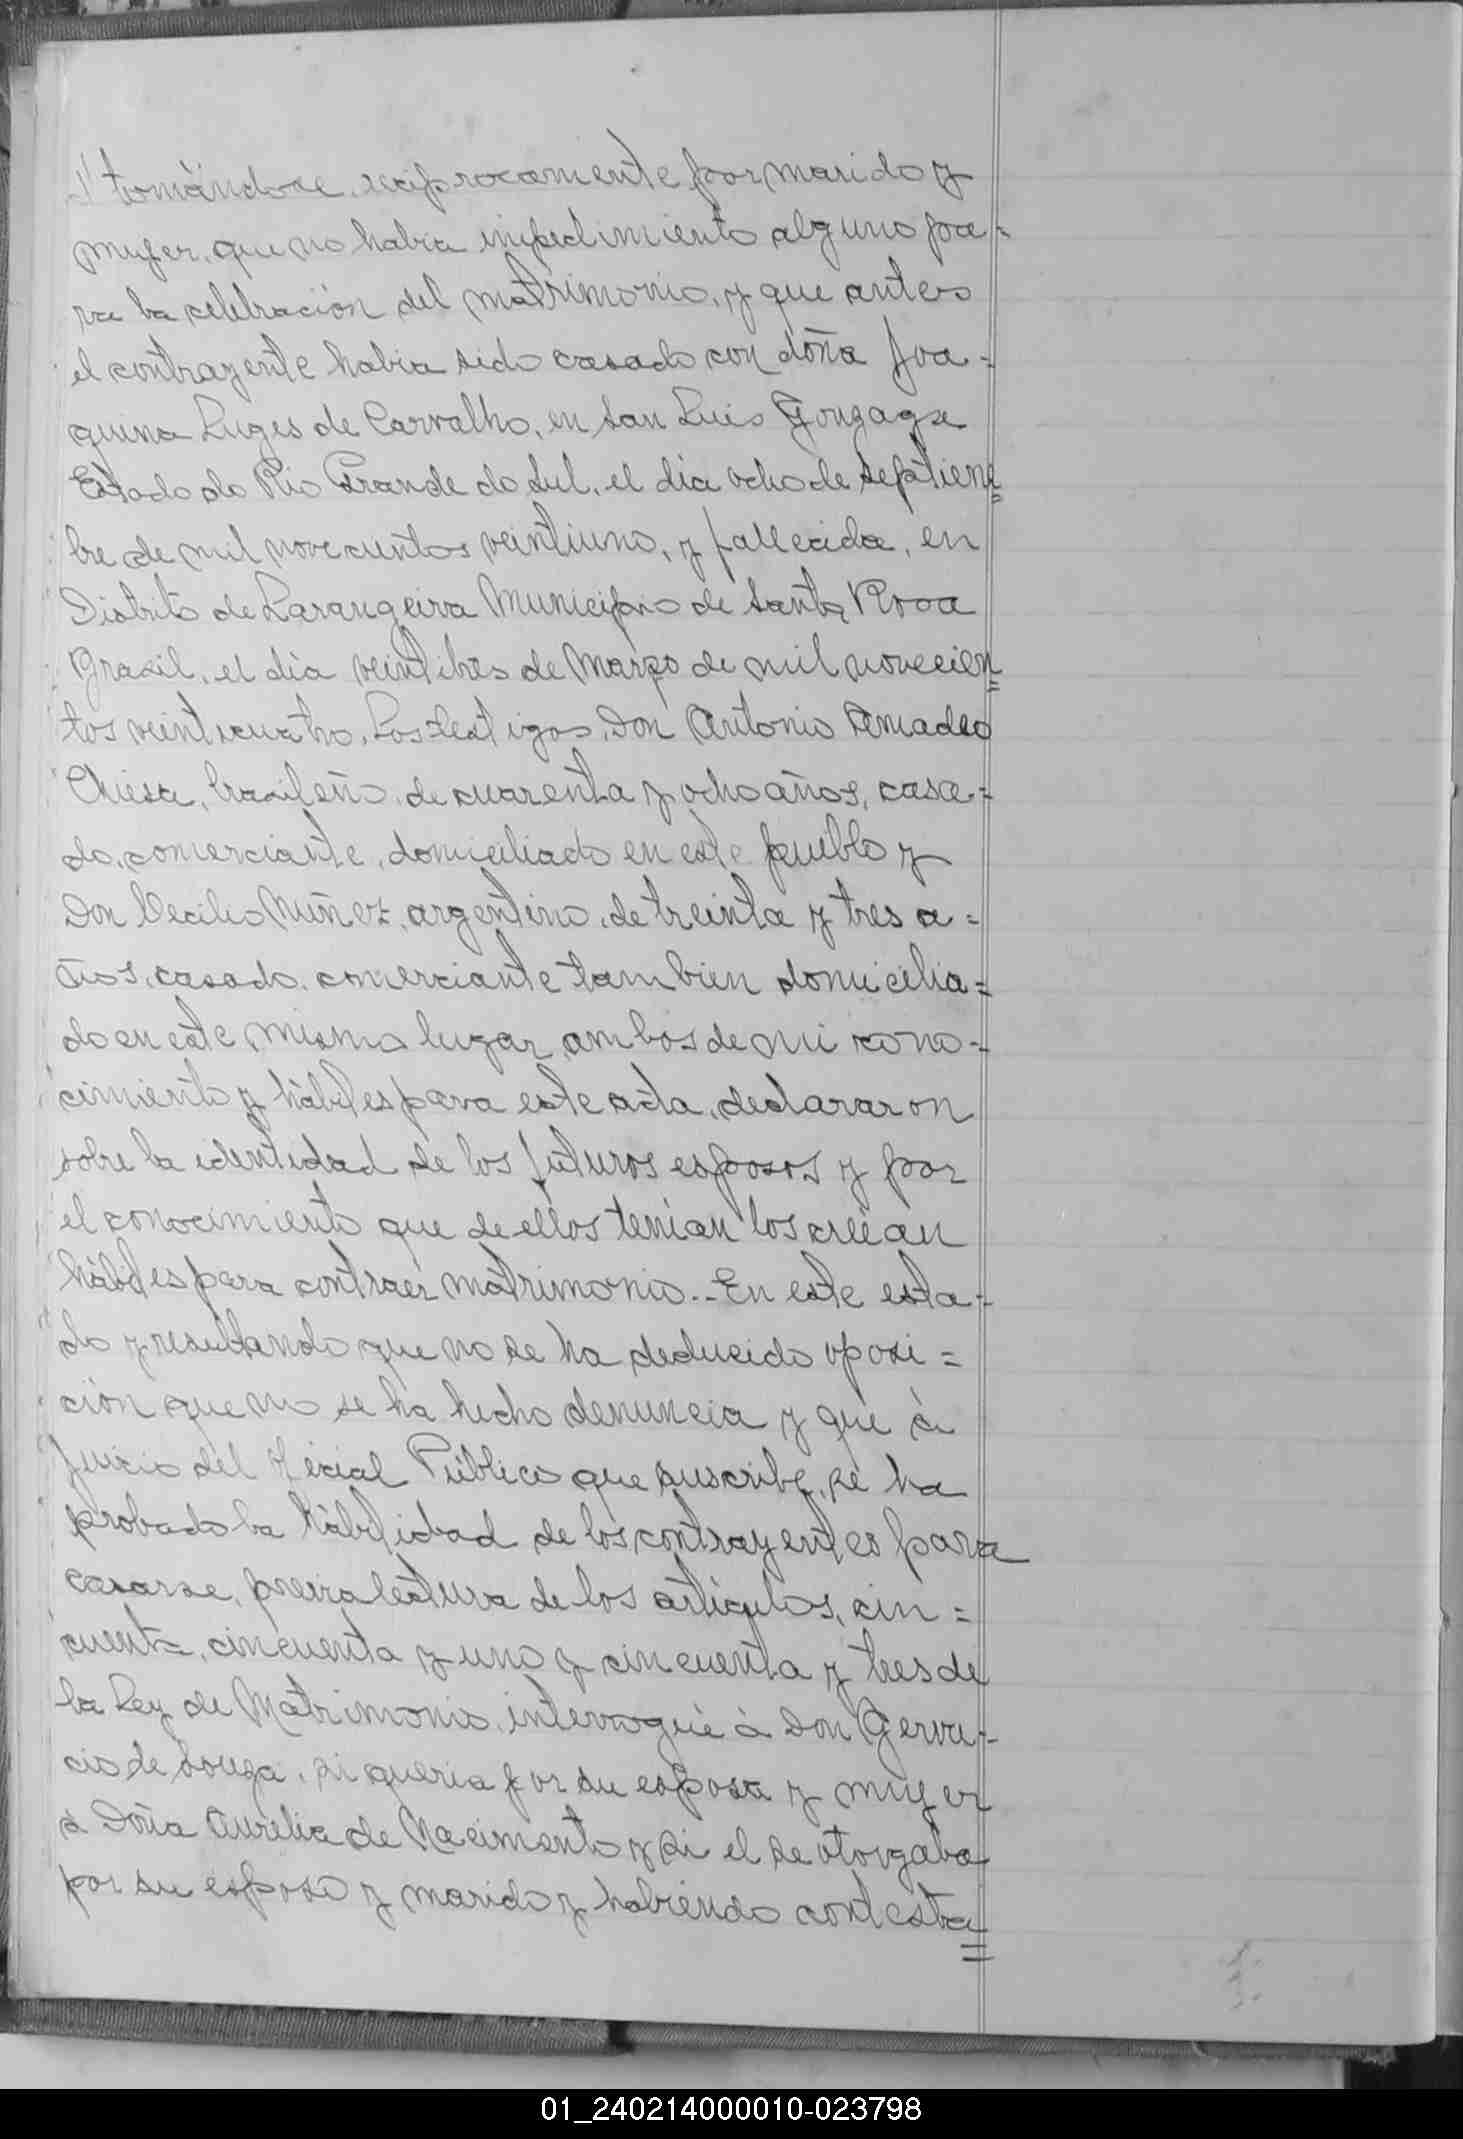 tomándose reciprocamente por marido y
mujer, que no habia impedimiento alguno pa=
ra la celebración del matrimonio, y que antes
el contrayente habia sido casado con doña Joa=
quina Luges de Carvalho, en San Luis Gonzaga
Estado do Rio Grande do Sul, el dia ocho de septiem=
bre de mil novecuentos veintiuno, y fallecida, en
Distrito de Larangeira Municipio de Santa Rosa
Brasil, el dia veintitres de Marzo de mil novecien=
tos veinticuatro. Los testigos, Don Antonio Amadeo
Chiesa, brasileño, de cuarenta y ocho años, casa=
do, comerciante, domiciliado en este pueblo y
Don Cecilio Nuñez, argentino, de treinta y tres a=
ños, casado, comerciante tambien domicilia=
do en este mismo lugar, ambos de mi cono=
cimiento y hábiles para este acta, declararon
sobre la identidad de los futuros esposos y por
el conocimiento que de ellos tenían los creían
hábiles para contraer matrimonio.- En este esta=
do y resultando que no se ha deducido oposi=
ción que no se ha hecho denuncia y que á
juicio del Oficial Público que suscribe, se ha
probado la habilidad de los contrayentes para
casarse, previa lectura de los artículos, cin=
cuenta, cincuenta y uno y cincuenta y tres de
la Ley de Matrimonio, interrogué á Don Gerva=
cio de Souza, si queria por su esposa y mujer
á Doña Aurelia de Nacimento y si el se otorgaba
por su esposo y marido y habiendo contesta=
01_240214000010-023798